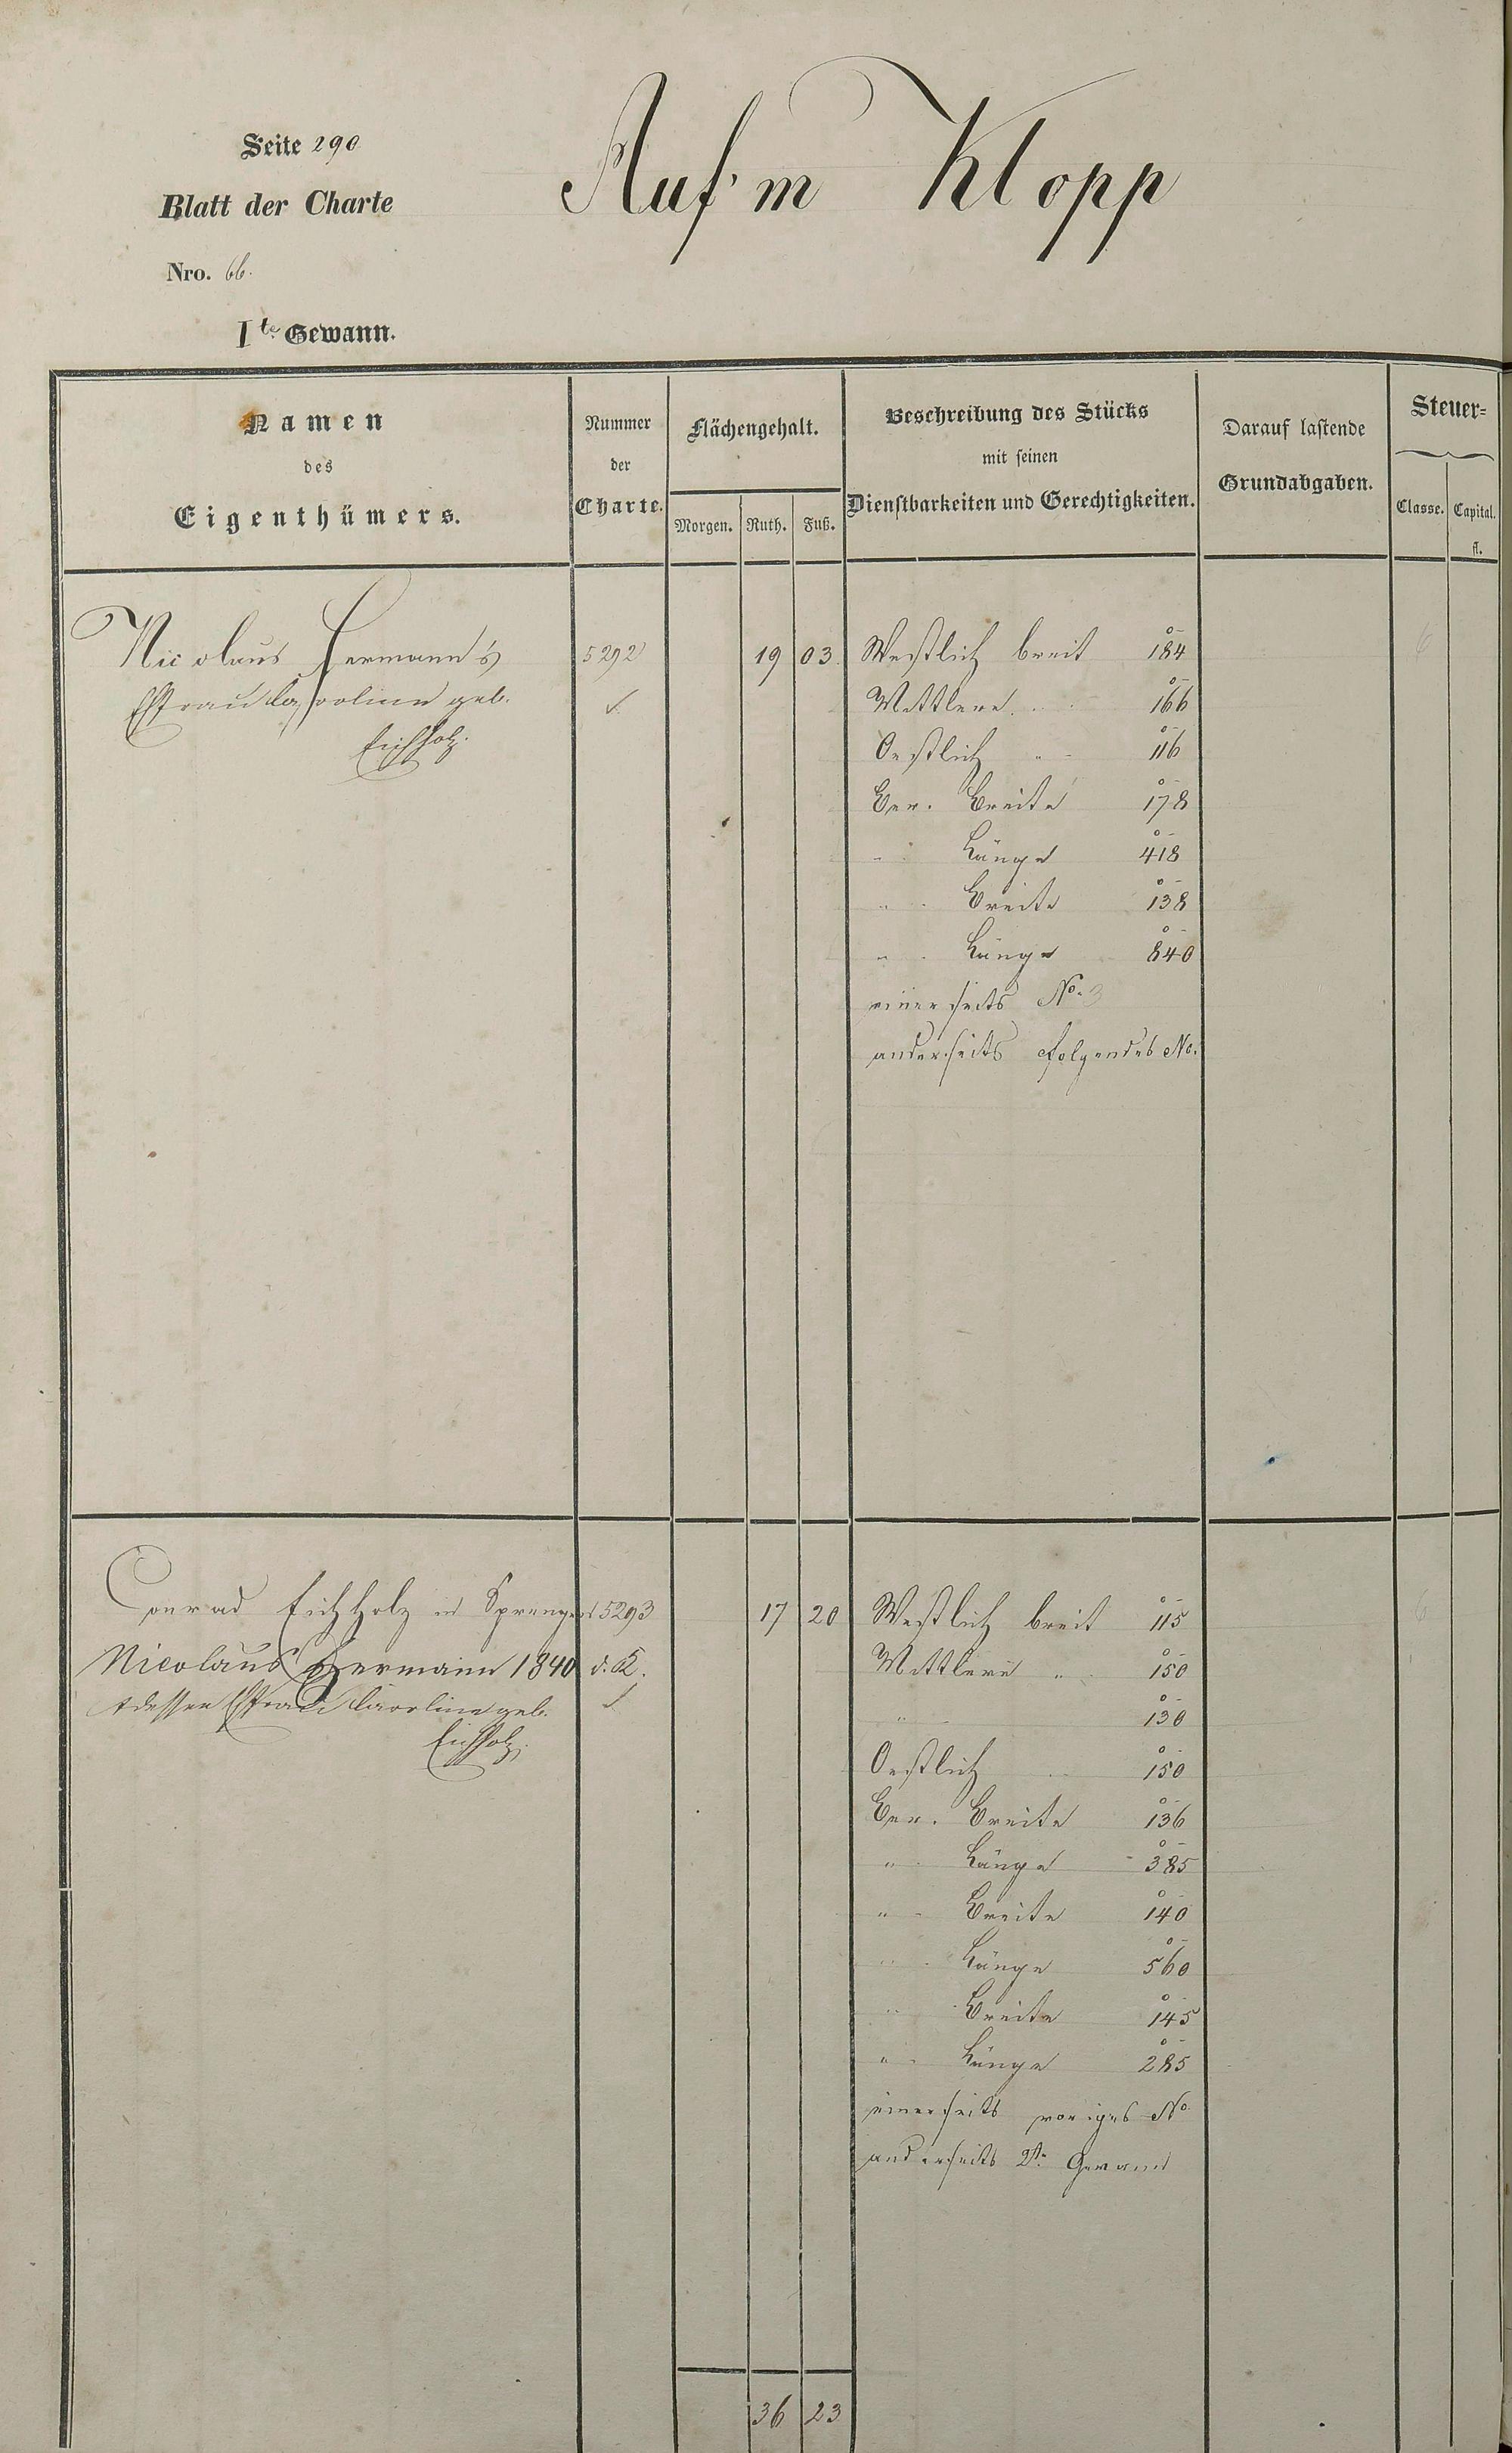 Seite 290
Blatt der Charte
Nro. 66.
Auf'm Klopp
Ite Gewann.
Namen
des
Eigenthümers.
Nummer
der
Charte.
Flächengehalt.
Morgen. Ruth. Fuß.
Beschreibung des Stücks
mit seinen
Dienstbarkeiten und Gerechtigkeiten.
Darauf lastende
Grundabgaben.
Steuer-
Classe. Capital.
fl.
Nicolaus Hermann's 5292 19 03 Westlich breit 184 6
Ehfrau Caroline geb. Mittlere 166
Eichholz. Oestlich " 116
Ber. Breite 178
" Länge 418
" Breite 138
" Länge 840
einerseits No. 3
anderseits folgendes No.
Conrad Eichholz in Sprengen 5293 17 20 Westlich breit 115 6
Nicolaus Hermann 1840 d. K. Mittlere " 150
dessen Ehfrau Caroline geb. " 130
Eichholz. Oestlich 150
Ber. Breite 136
" Länge 385
" Breite 140
" Länge 560
" Breite 145
" Länge 285
einerseits voriges No
anderseits 2te Gewann
36 23